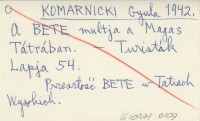 KOMARNICKI Gyula 1942.
A BETE multja a Magas
Tátrában. – Turisták
Lapja 54.
Przeszłość BETE w Tatrach
Wysokich.